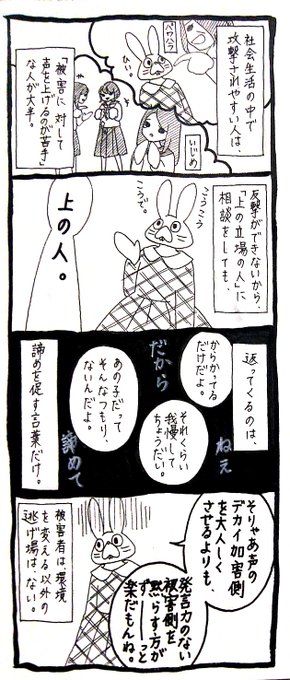 社会生活の中で
攻撃されやすい人は、
パワハラ
ひぃ。
いじめ
「被害に対して
声を上げるのが苦手」
な人が大半。
反撃ができないから、
「上の立場の人」に
相談をしても、
こうこう
こうで。
上の人。
返ってくるのは、
からかってる
だけだよ。
それくらい
我慢して
ちょうだい。
あの子だって
そんなつもり、
ないんだよ。
ねえ
だから
諦めて
諦めを促す言葉だけ。
そりゃあ声の
デカイ加害側
を大人しく
させるよりも、
発言力のない
被害側を
黙らす方が
ずーっと
楽だもんね。
被害者は、環境
を変える以外の
逃げ場は、ない。